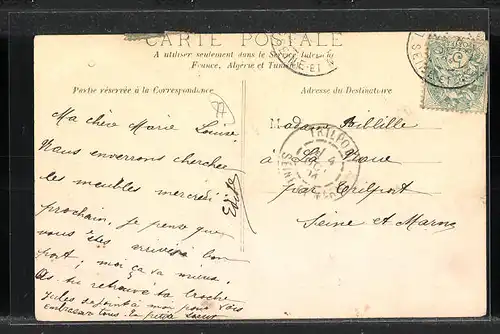 CARTE POSTALE
A utiliser seulement dans le Service Intérieur
France, Algérie et Tunisie
Partie réservée à la Correspondance
Adresse du Destinataire
Ma chère Marie Louise,
Nous enverrons chercher
les meubles mercredi
prochain, je pense que
vous êtes arrivés bon
port; moi ça va mieux.
As tu retrouvé ta broche
Jules se joint à moi pour vous
embrasser tous. ta petite sœur
Edith
Madame Billille
à La
par Trilport
Seine et Marne
TRILPORT
SEINE-ET-